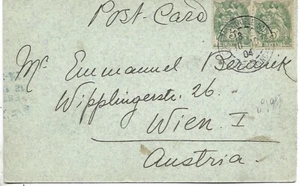 Post-Card
Mr. Emmanuel Beranek
Wipplingerstr. 26.
Wien. I
Austria.